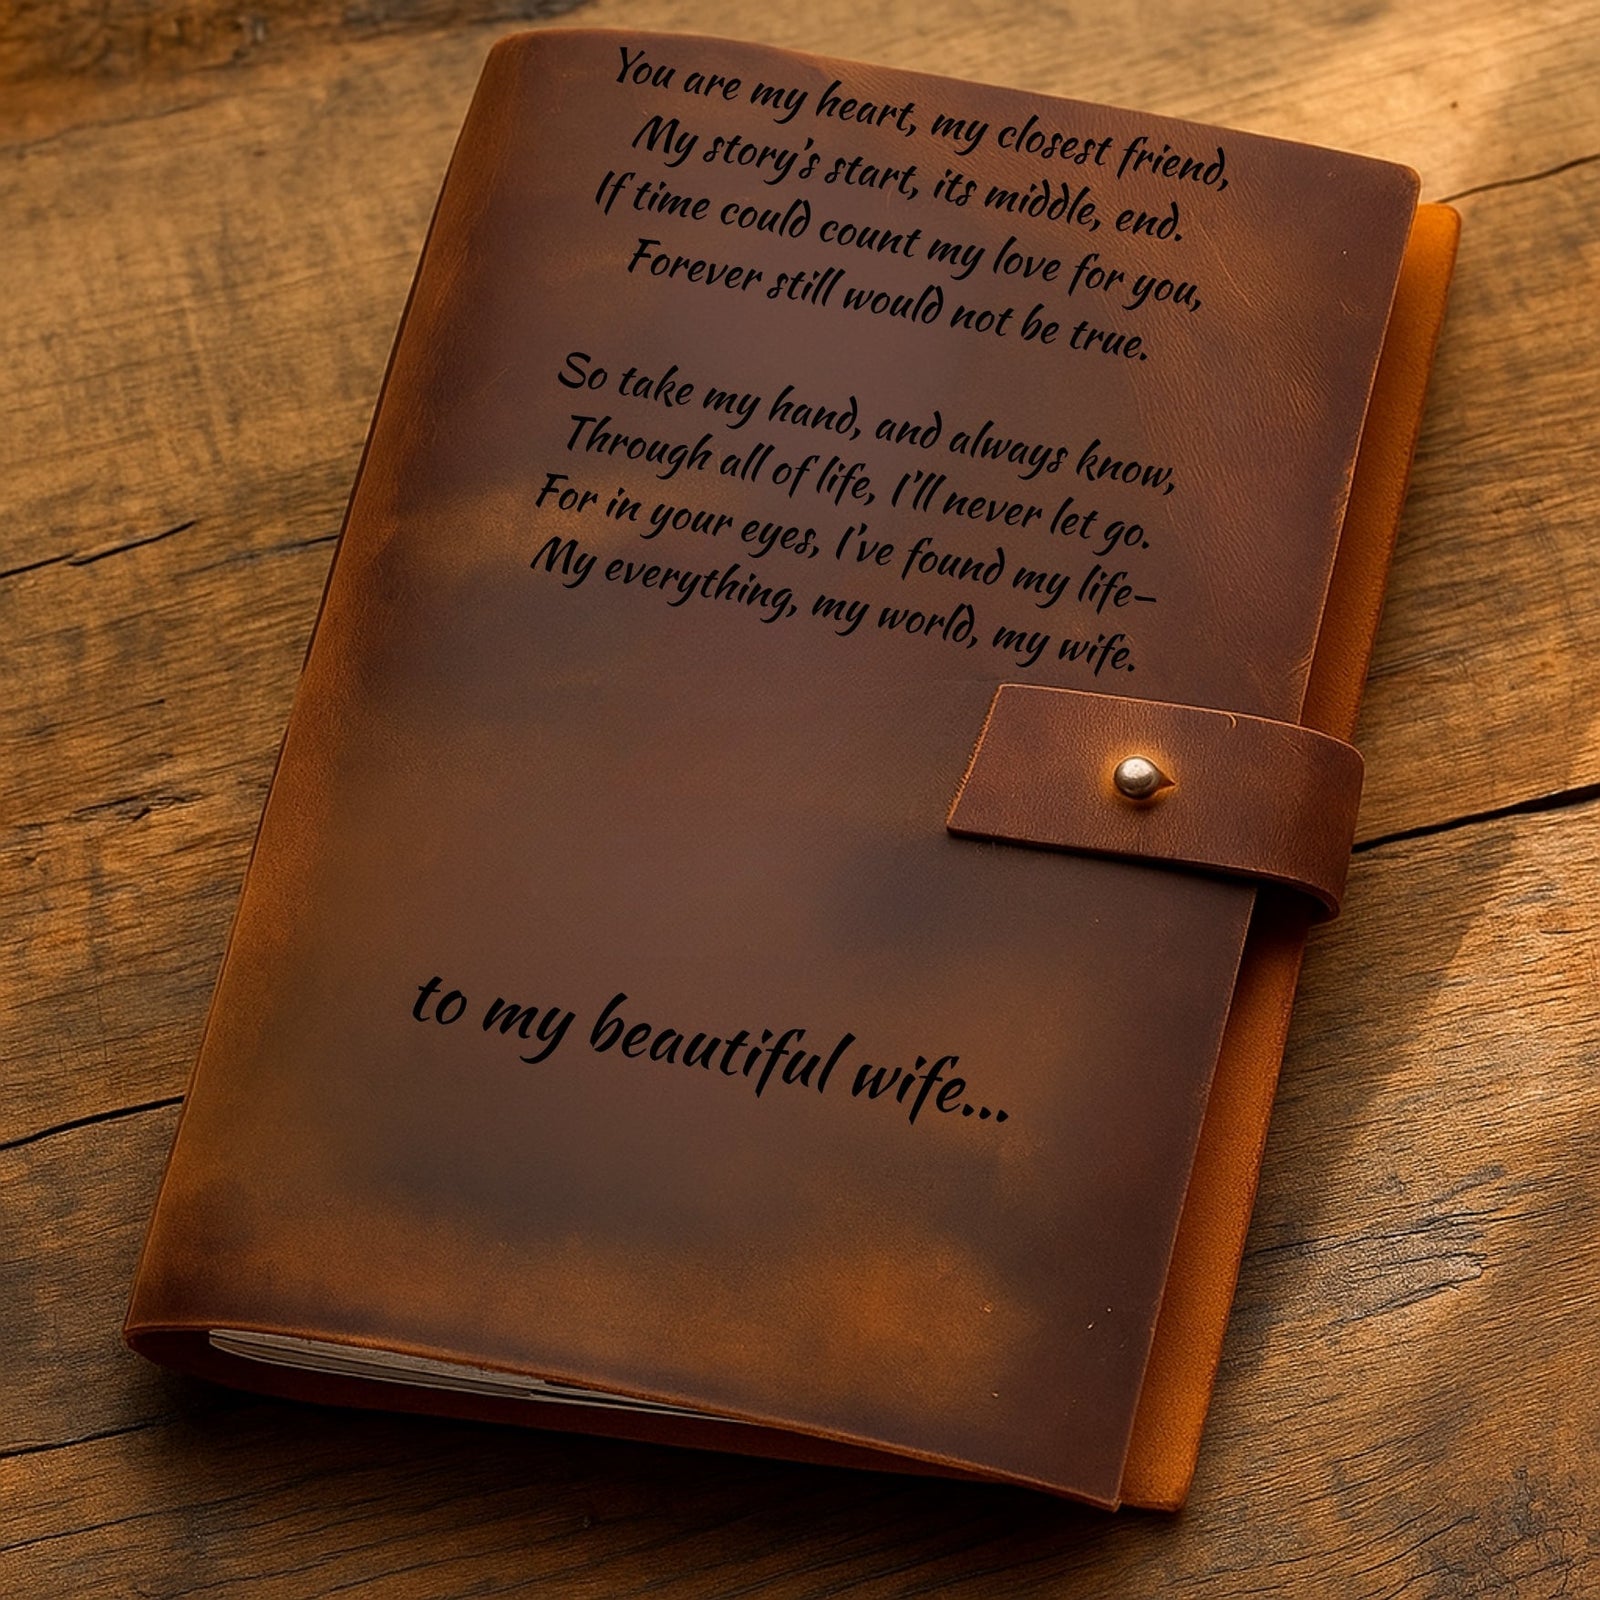 You are my heart, my closest friend,
My story's start, its middle, end.
If time could count my love for you,
Forever still would not be true.
So take my hand, and always know,
Through all of life, I'll never let go.
For in your eyes, I've found my life–
My everything, my world, my wife.
to my beautiful wife...